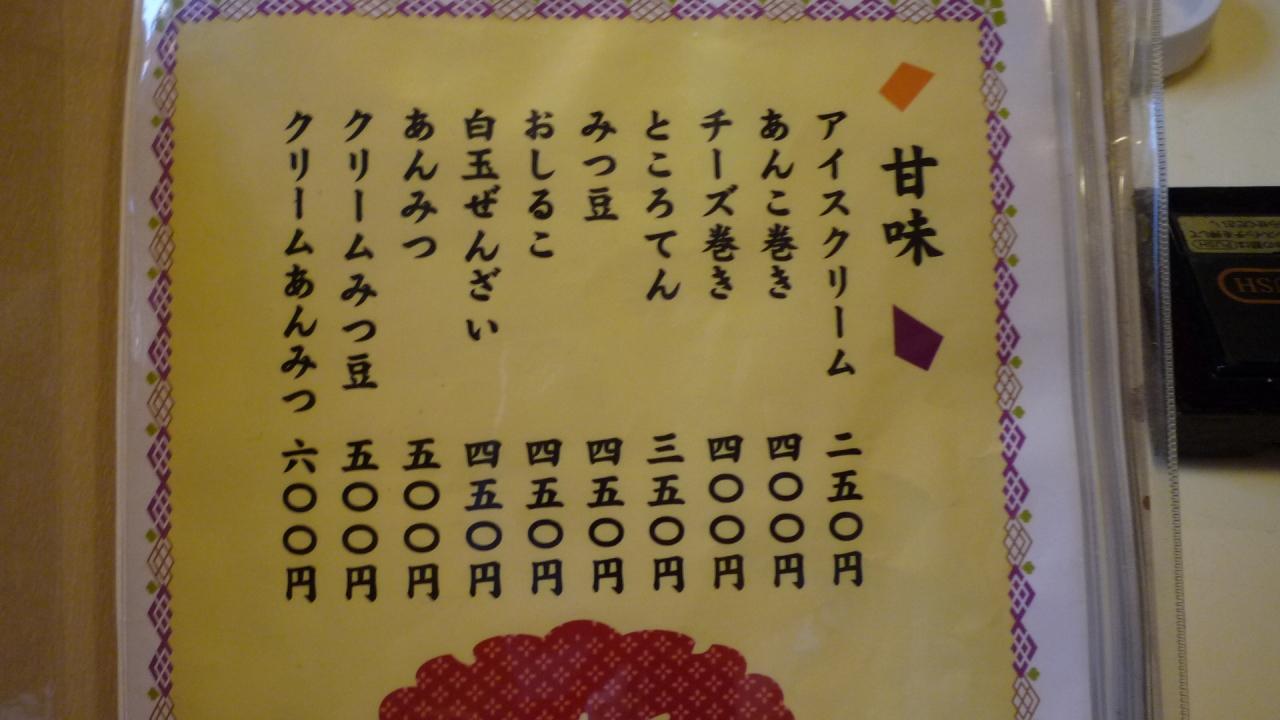 甘味
アイスクリーム 二五〇円
あんこ巻き 四〇〇円
チーズ巻き 四〇〇円
ところてん 三五〇円
みつ豆 四五〇円
おしるこ 四五〇円
白玉ぜんざい 四五〇円
あんみつ 五〇〇円
クリームみつ豆 五〇〇円
クリームあんみつ 六〇〇円